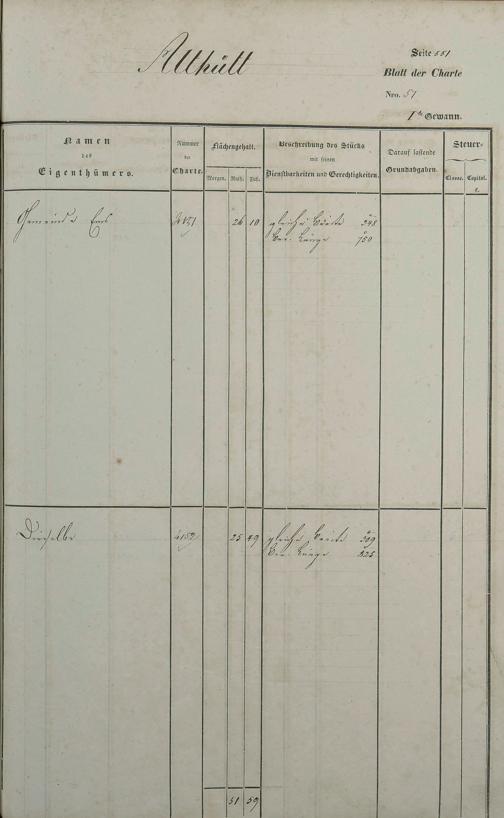 Althütt
Seite 551
Blatt der Charte
Nro. 51
1te Gewann.
Namen des Eigenthümers.
Nummer der Charte.
Flächengehalt.
Morgen. Ruth. Fuß.
Beschreibung des Stücks mit seinen Dienstbarkeiten und Gerechtigkeiten.
Darauf lastende Grundabgaben.
Steuer-
Classe. Capital.
Gemeinde Ems 4151 26 10 gleiche Breite 348
Ber. Länge 750
Dieselbe 4152 25 49 gleiche Breite 309
Ber. Länge 825
51 59